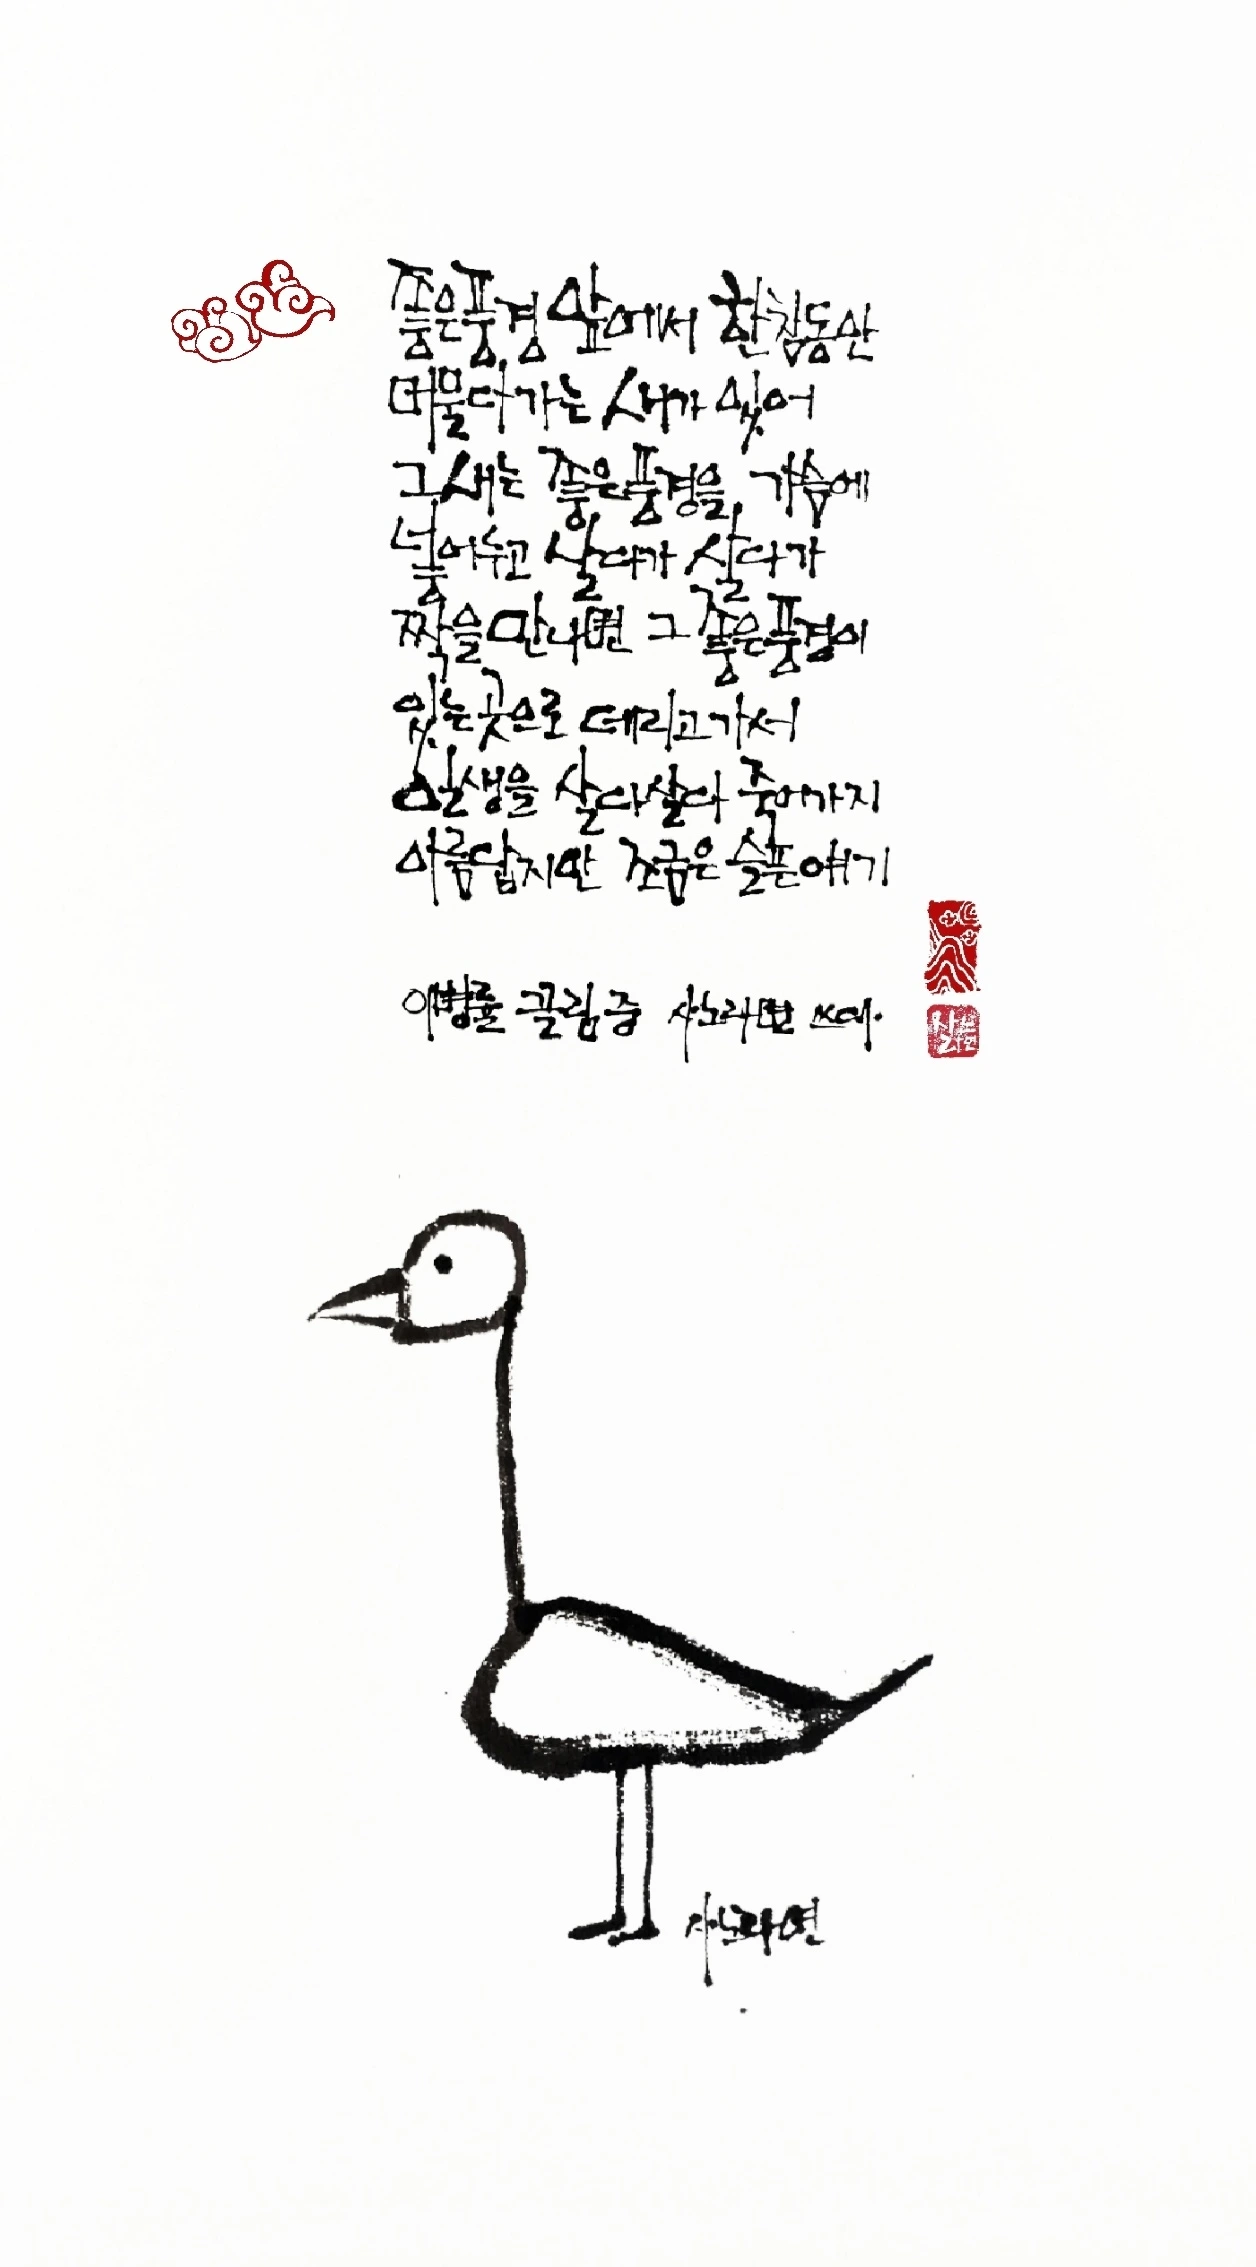 좋은풍경 앞에서 한참동안
머물다가는 새가 있어
그새는 좋은풍경을 가슴에
넣어두고 살다가 살다가
짝을만나면 그 좋은풍경이
있는곳으로 데리고가서
일생을 살다살다 죽어가지
아름답지만 조금은 슬픈얘기
이병률 끌림 중 사노라면 쓰다.
사노라면